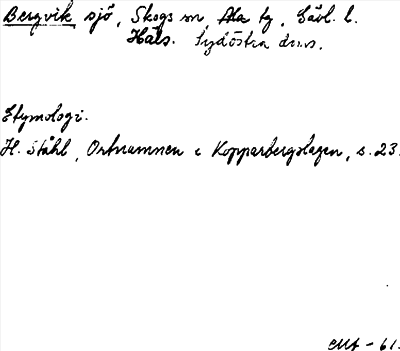 Bergvik sjö, Skogs sn, Ala tg, Gävl. l.
Häls. Sydöstra doms.
Etymologi.
H. Ståhl, Ortnamnen i Kopparbergslagen, s. 23.
-61.